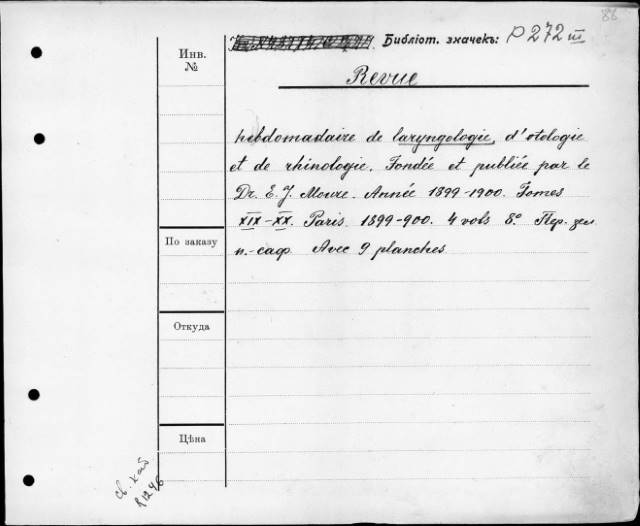 88
Библіот. значекъ: P 272 III
Инв.
№
Revue
hebdomadaire de laryngologie, d'otologie
et de rhinologie. Fondée et publiée par le
Dr. E. J. Moure. Année 1899-1900. Tomes
XIX-XX. Paris. 1899-900. 4 vols 8º. Пер. зел
п.-саф. Avec 9 planches
По заказу
Откуда
Цѣна
св. кат